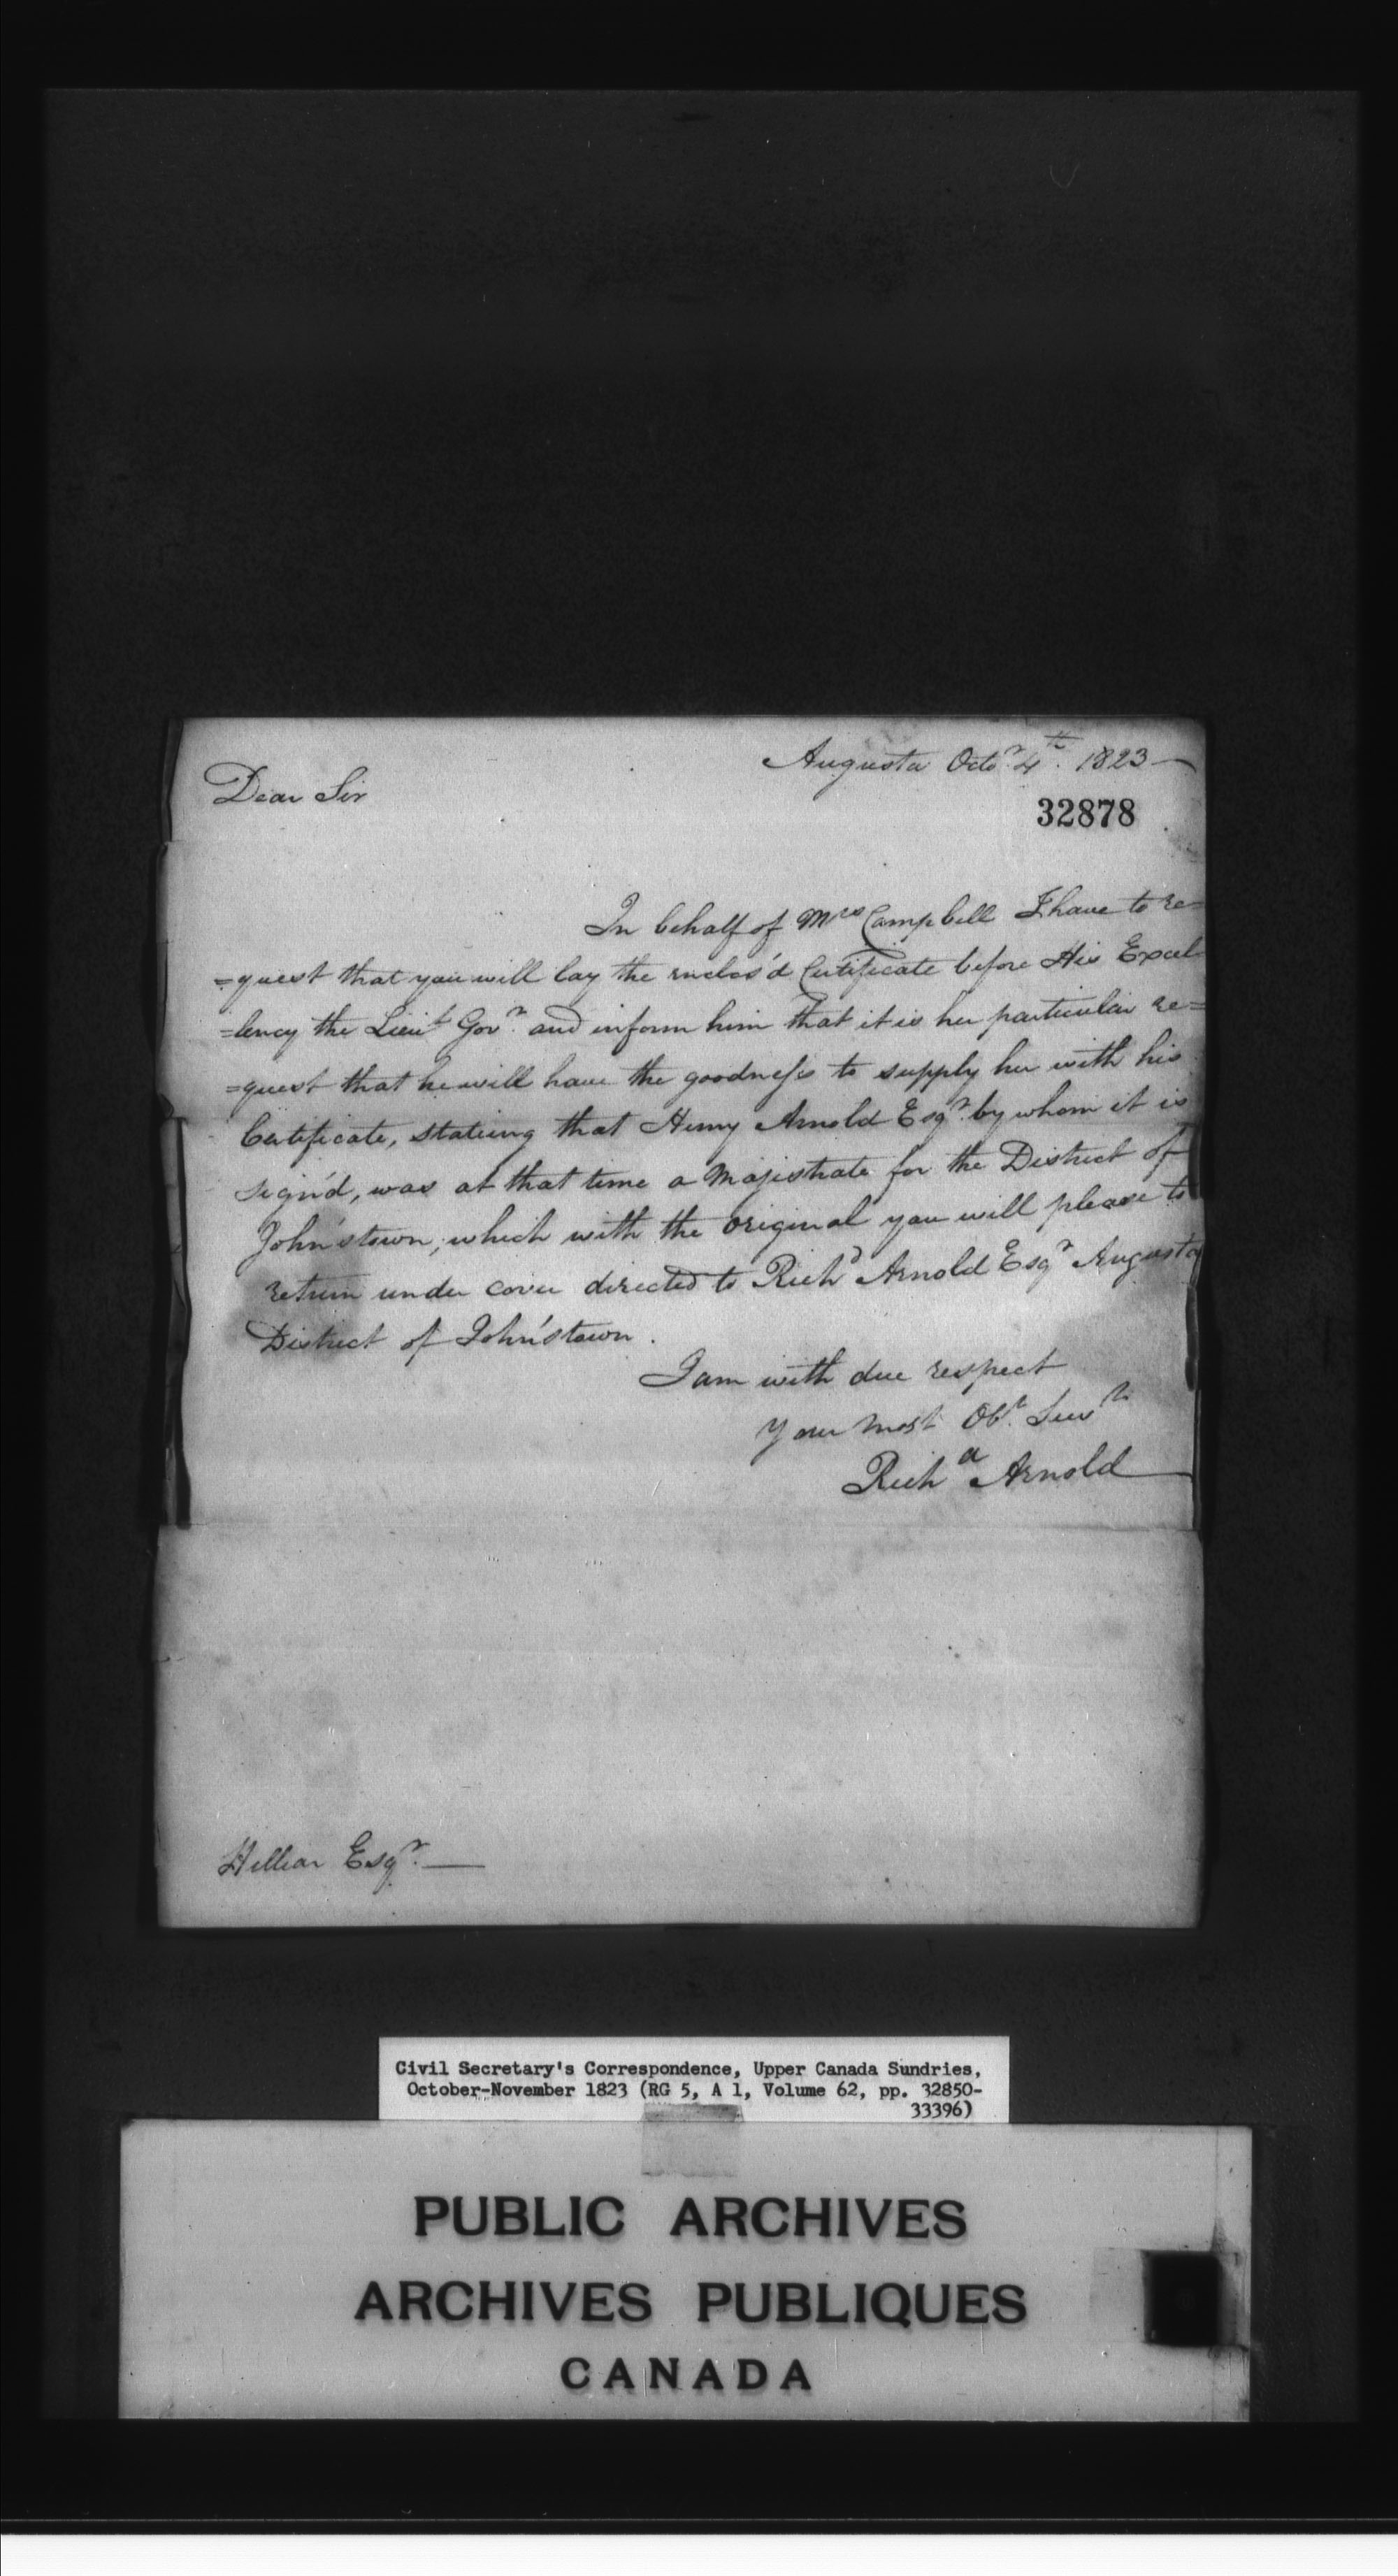 Augusta Octo.r 4th. 1823—
Dear Sir
32878
In behalf of Mrs Campbell I have to re=
=quest that you will lay the enclos'd Certificate before His Excel=
=lency the Lieut Gov.r and inform him that it is her particular re=
=quest that he will have the goodness to supply her with his
Certificate, stateing that Henry Arnold Esq.r by whom it is
sign'd, was at that time a Majistrate for the District of
John'stown; which with the original you will please to
return under cover directed to Richd Arnold Esqr Augusta
District of John'stown.
I am with due respect
Your most Obt. Servt
Richd Arnold
Hillier Esqr.—
Civil Secretary's Correspondence, Upper Canada Sundries,
October-November 1823 (RG 5, A 1, Volume 62, pp. 32850-
33396)
PUBLIC ARCHIVES
ARCHIVES PUBLIQUES
CANADA